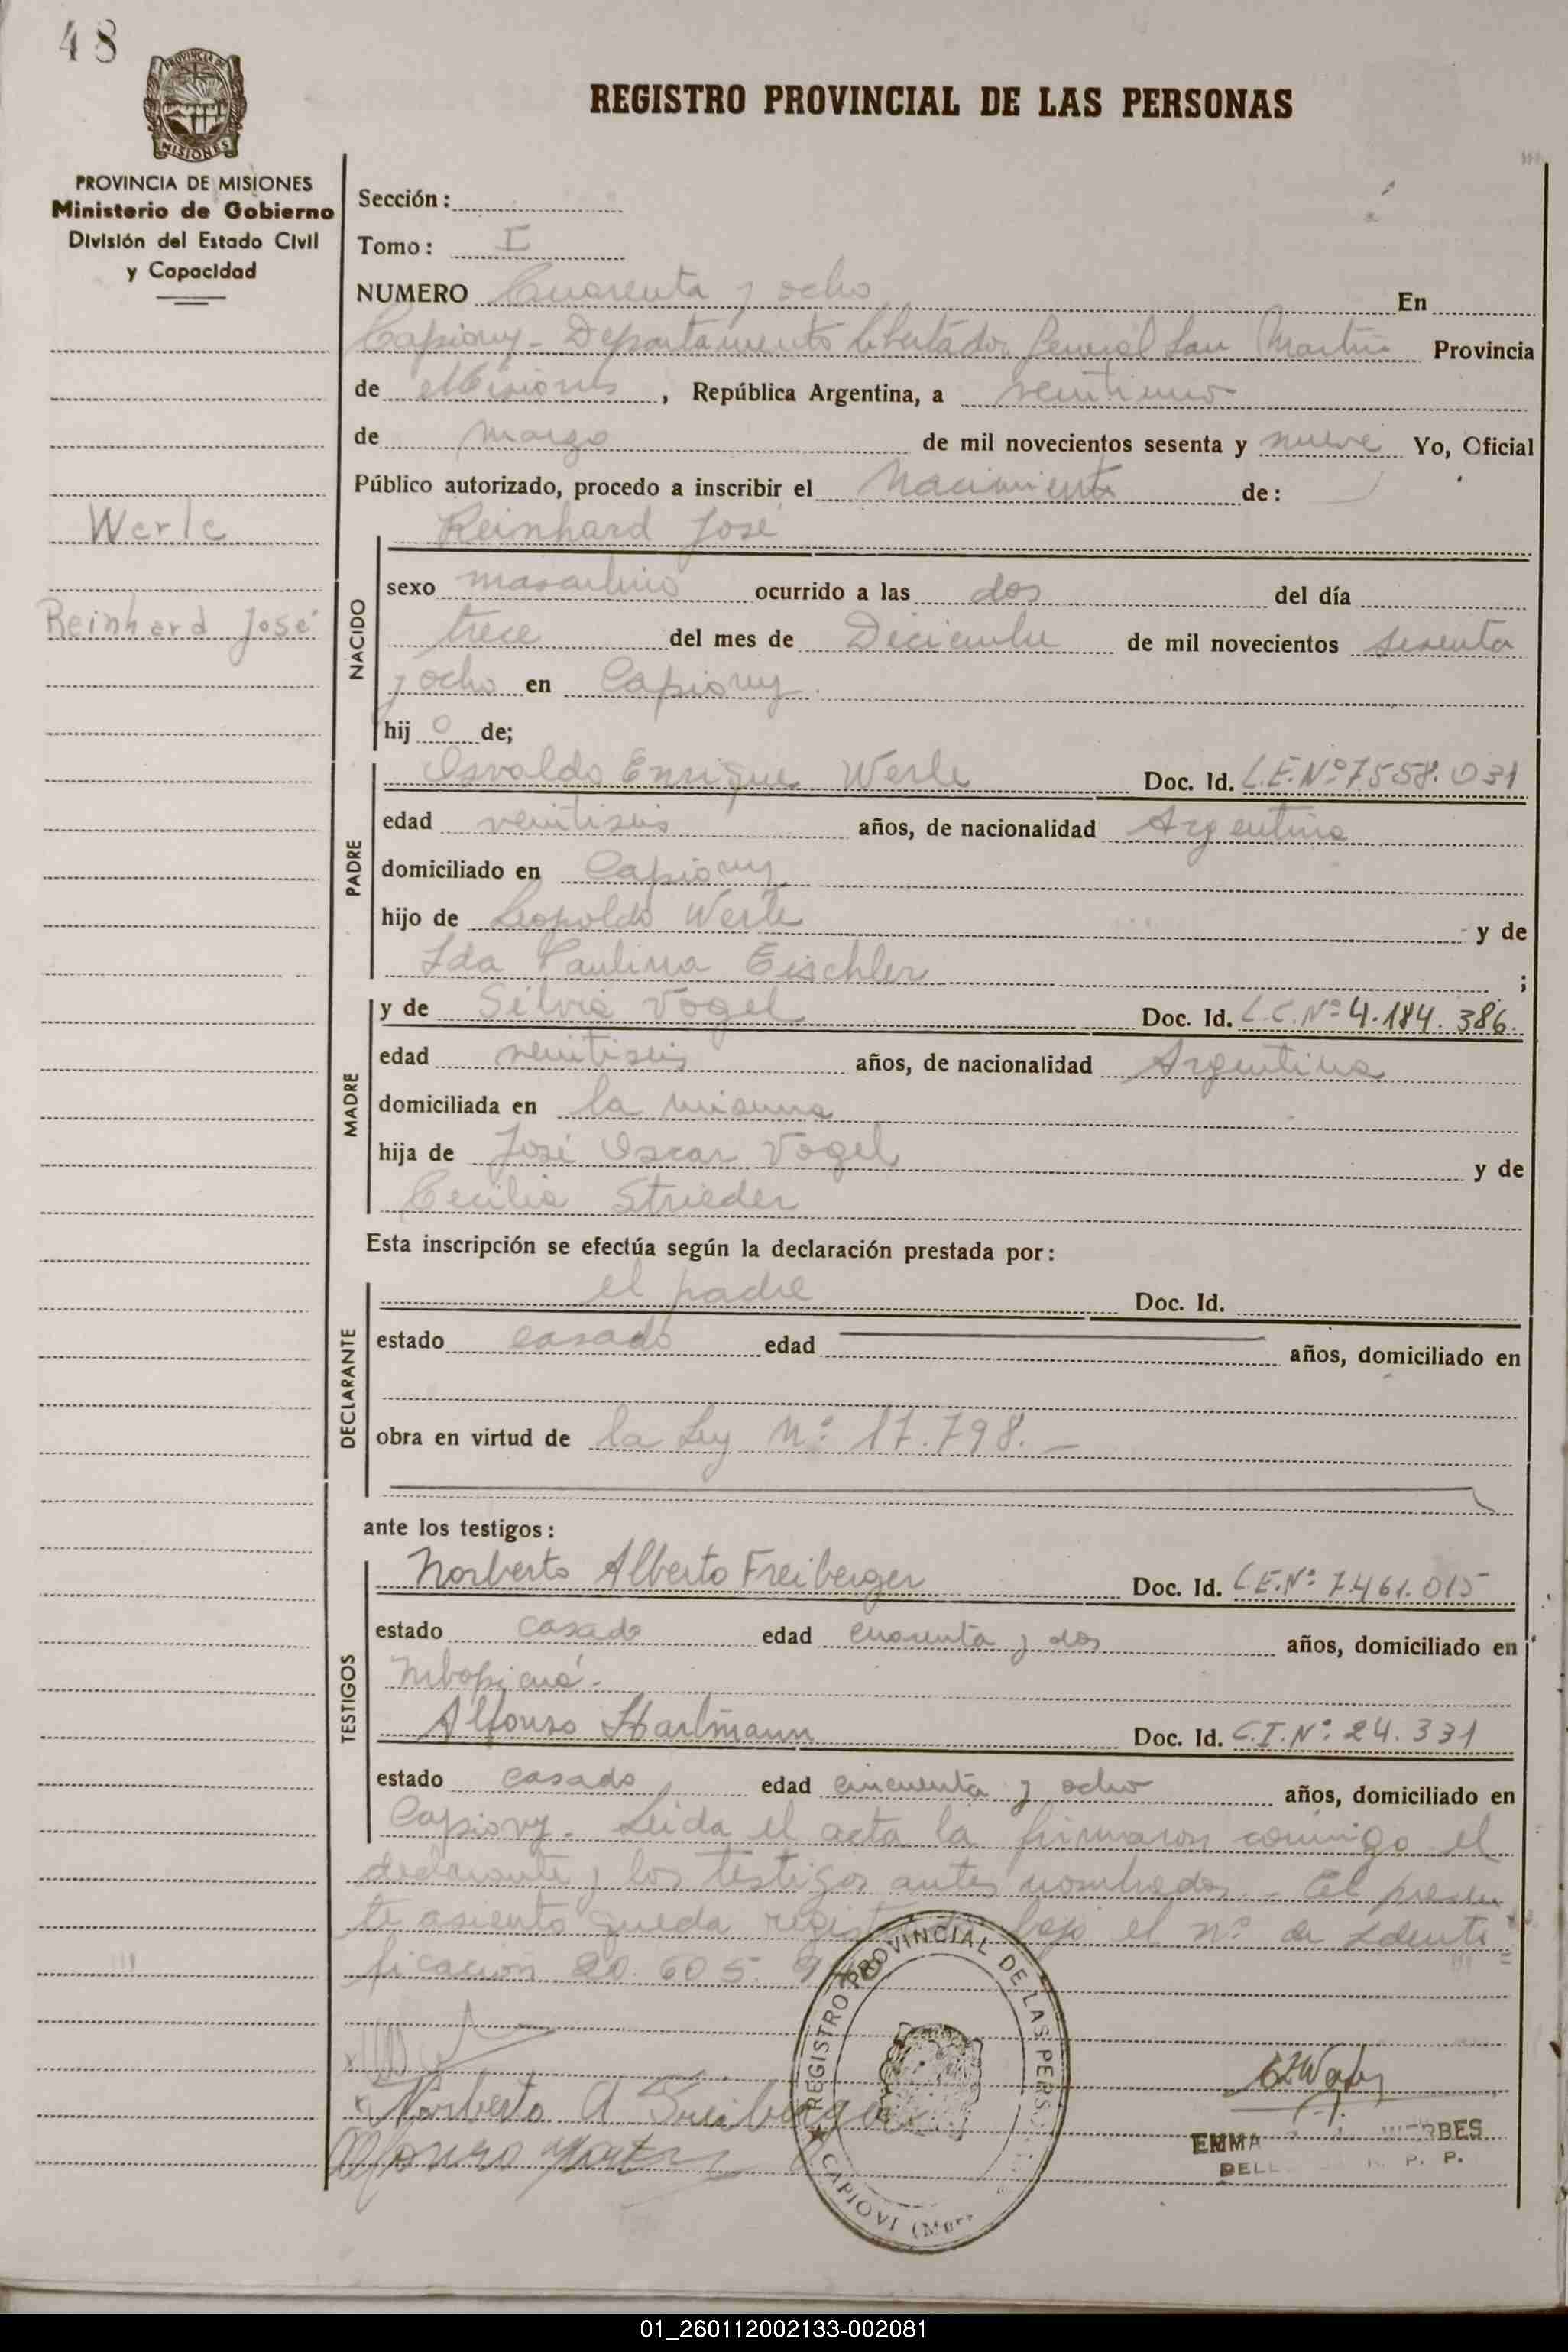 48
PROVINCIA DE MISIONES
REGISTRO PROVINCIAL DE LAS PERSONAS
PROVINCIA DE MISIONES
Ministerio de Gobierno
División del Estado Civil
y Capacidad
Werle
Reinhard José
Sección:
Tomo: I
NUMERO Cuarenta y ocho En
Capiovy - Departamento Libertador General San Martín Provincia
de Misiones, República Argentina, a veintiuno
de marzo de mil novecientos sesenta y nueve Yo, Oficial
Público autorizado, procedo a inscribir el Nacimiento de:
NACIDO
Reinhard José
sexo masculino ocurrido a las dos del día
trece del mes de Diciembre de mil novecientos sesenta
y ocho en Capiovy
hij o de;
PADRE
Osvaldo Enrique Werle Doc. Id. L.E.Nº 7558.031
edad veintiseis años, de nacionalidad Argentina
domiciliado en Capiovy
hijo de Leopoldo Werle y de
Ida Paulina Eischler ;
MADRE
y de Silvia Vogel Doc. Id. L.C.Nº 4.184.386.
edad veintiseis años, de nacionalidad Argentina
domiciliada en la misma
hija de José Oscar Vogel y de
Cecilia Strieder
Esta inscripción se efectúa según la declaración prestada por:
DECLARANTE
el padre Doc. Id.
estado casado edad años, domiciliado en
obra en virtud de la Ley Nº: 17.798. —
ante los testigos:
TESTIGOS
Norberto Alberto Freiberger Doc. Id. L.E.Nº 7.461.015
estado casado edad cuarenta y dos años, domiciliado en
Mbopicuá -
Alfonso Hartmann Doc. Id. C.I.Nº: 24.331
estado casado edad cincuenta y ocho años, domiciliado en
Capiovy. Leida el acta la firmaron conmigo el
declarante y los testigos antes nombrados. - El presen
te asiento queda registrado bajo el nº de Identi
ficación 20.605.9
Norberto A Freiberger
Alfonso
REGISTRO PROVINCIAL DE LAS PERS
CAPIOVI
EMMA
P. P.
01_260112002133-002081